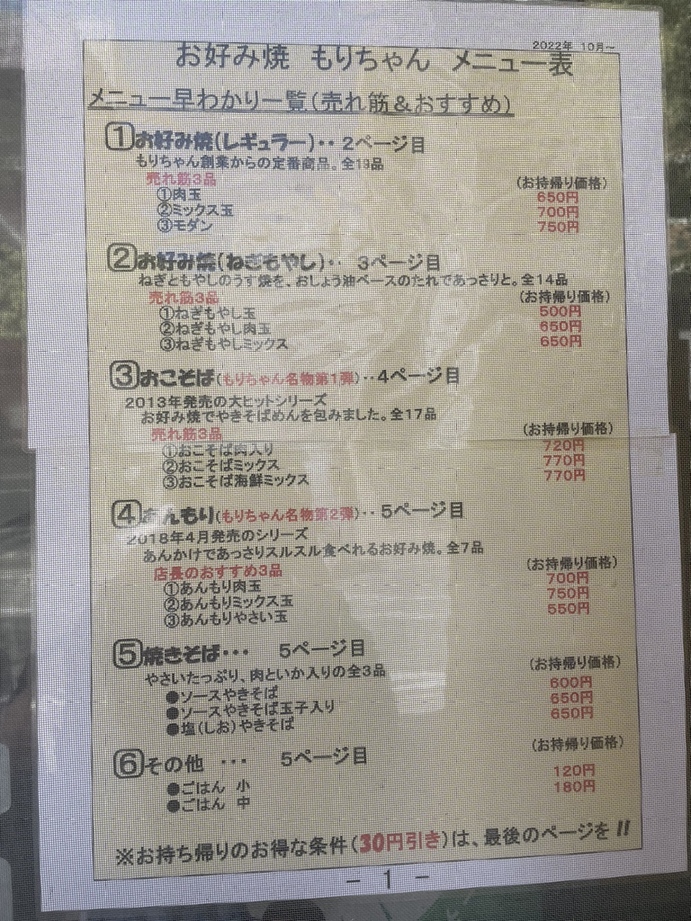 2022年 10月~
お好み焼 もりちゃん メニュー表
メニュー早わかり一覧(売れ筋&おすすめ)
1 お好み焼(レギュラー)‥ 2ページ目
もりちゃん創業からの定番商品。
売れ筋3品 (お持帰り価格)
①肉玉 650円
②ミックス玉 700円
③モダン 750円
2 お好み焼(ねぎもやし)‥ 3ページ目
ねぎともやしのうす焼を、おしょう油ベースのたれであっさりと。全14品
売れ筋3品 (お持帰り価格)
①ねぎもやし玉 500円
②ねぎもやし肉玉 650円
③ねぎもやしミックス 650円
3 おこそば(もりちゃん名物第1弾)‥4ページ目
2013年発売の大ヒットシリーズ
お好み焼でやきそばめんを包みました。全17品
売れ筋3品 (お持帰り価格)
①おこそば肉入り 720円
②おこそばミックス 770円
③おこそば海鮮ミックス 770円
4 あんもり(もりちゃん名物第2弾)‥5ページ目
2018年4月発売のシリーズ
あんかけであっさりスルスル食べれるお好み焼。全7品
店長のおすすめ3品 (お持帰り価格)
①あんもり肉玉 700円
②あんもりミックス玉 750円
③あんもりやさい玉 550円
5 焼きそば・・・ 5ページ目
やさいたっぷり、肉といか入りの全3品 (お持帰り価格)
●ソースやきそば 600円
●ソースやきそば玉子入り 650円
●塩(しお)やきそば 650円
6 その他 ・・・ 5ページ目 (お持帰り価格)
●ごはん 小 120円
●ごはん 中 180円
※お持ち帰りのお得な条件(30円引き)は、最後のページを!!
- 1 -